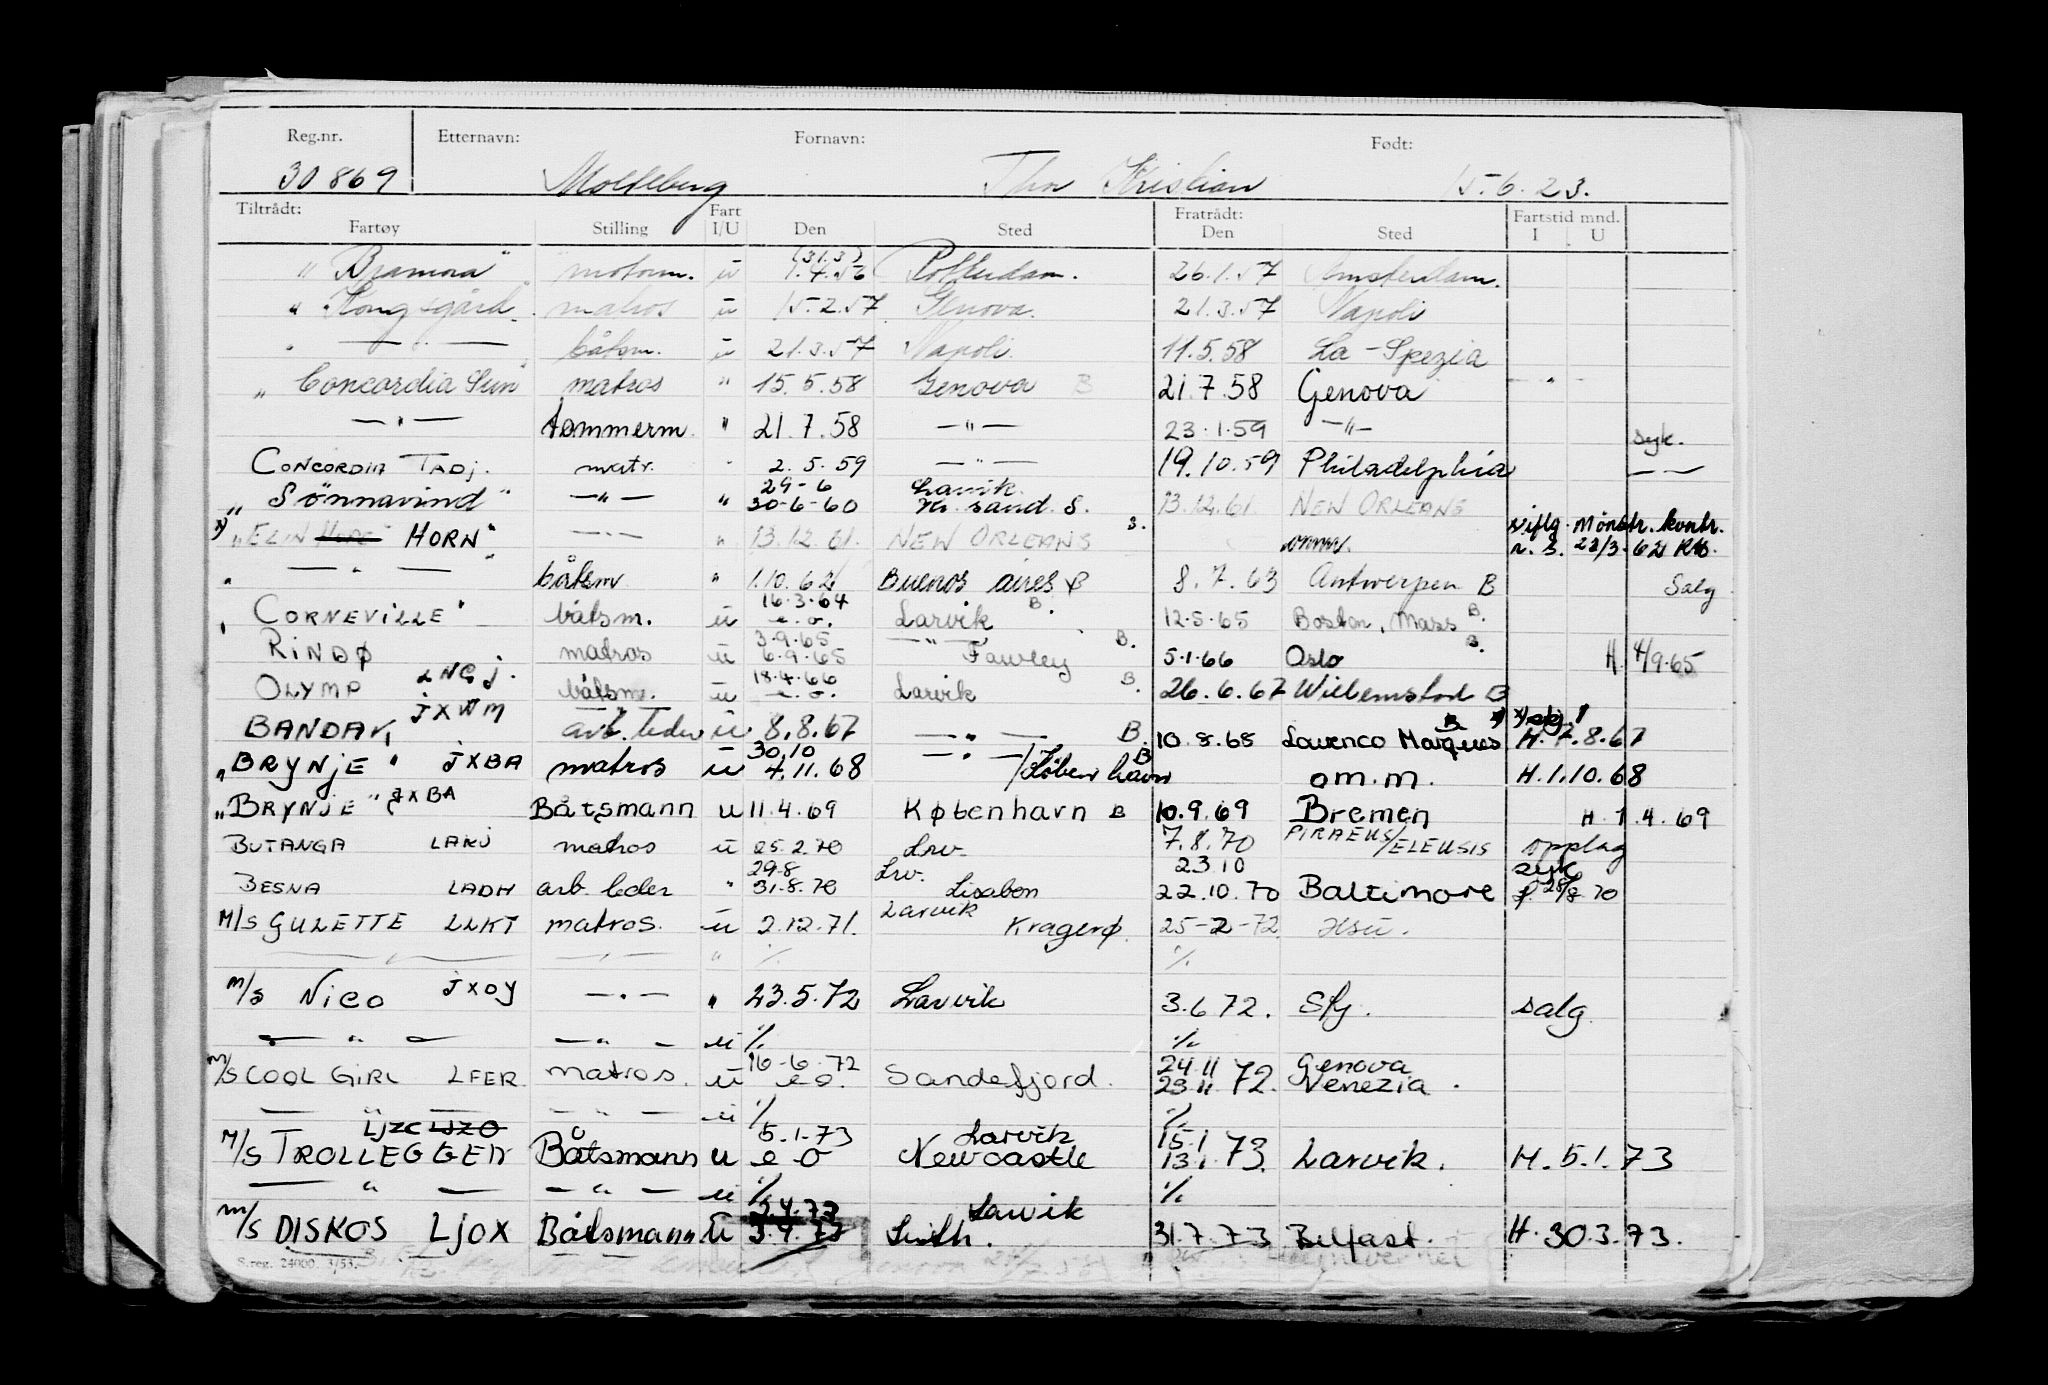 Reg.nr. Etternavn: Fornavn: Født:
30869 Moltleberg Thor Kristian 15.6.23.
Tiltrådt: Fart Fratrådt: Fartstid mnd.
Fartøy Stilling I/U Den Sted Den Sted I U
" Bramora " motorm. u (31.3) 1.4.56 Rotterdam. 26.1.57 Amsterdam.
" Kongsgård " matros u 15.2.57 Genova. 21.3.57 Napoli
" — " — båtsm. u 21.3.57 Napoli. 11.5.58 La-Spezia
" Concordia Sun " matros " 15.5.58 Genova B 21.7.58 Genova — " —
— " — tømmerm. " 21.7.58 — " — 23.1.59 — " — syk.
CONCORDIA TADJ. matr. " 2.5.59 — " — 19.10.59 Philadelphia — " —
" Sønnavind " — " — " 29-6 30-6-60 Larvik Kr. sand. S. 13.12.61. NEW ORLEANS
x) " ELIN HORN " — " — " 13.12.61. NEW ORLEANS s. omm. v/flg. mønstr. kontr. n. s. 23/3-62
" — " — båtsm " 1.10.62 Buenos aires B 8.7.63 Antwerpen B Salg
" CORNEVILLE " båtsm. u 16.3.64 e.o. Larvik B. 12.5.65 Boston, Mass B.
RINDØ matros u 3.9.65 6.9.65 — " — Fawley B. 5.1.66 Oslo B. H. 4/9.65
OLYMP LNGJ. båtsm. u 18.4.66 e.o. Larvik B. 26.6.67 Willemstad B
BANDAK, JXWM arb. leder u 8.8.67 — " — B. 10.8.68 Lourenco Marques B x) H. 7.8.67
" BRYNJE " JXBA matros u 30.10 4.11.68 — " — /København B om.m. H.1.10.68
" BRYNJE " JXBA Båtsmann u 11.4.69 København B 10.9.69 Bremen H. 1.4.69
BUTANGA LAKJ matros u 25.2.70 Lrv. 7.8.70 PIRAEUS/ELEUSIS opplag
BESNA LADH arb. leder " 29.8 31.8.70 Lrv. Lisabon 23.10 22.10.70 Baltimore syk f. 28/8 70
M/S GULETTE LLKT matros. u 2.12.71. Larvik Kragerø. 25-2-72 Hsu.
— " — — " — " ./. ./.
M/S NICO JXOY — " — " 23.5.72 Larvik 3.6.72. Sfj. salg.
— " — — " — u ./. ./.
M/S COOL GIRL LFER matros. u 16-6-72 e.o. Sandefjord. 24.11 23.11.72. Genova Venezia.
— " — — " — u ./. ./.
M/S TROLLEGGEN LJZC LJZO Båtsmann u 5.1.73 e o Larvik Newcastle 15.1 13.1.73. Larvik. H. 5.1.73
— " — — " — u ./. ./.
M/S DISKOS LJOX Båtsmann u 2.4.73 3.4.73 Larvik Leith. 31.7.73 Belfast. H. 30.3.73.
S.reg. 24000. 3/53.